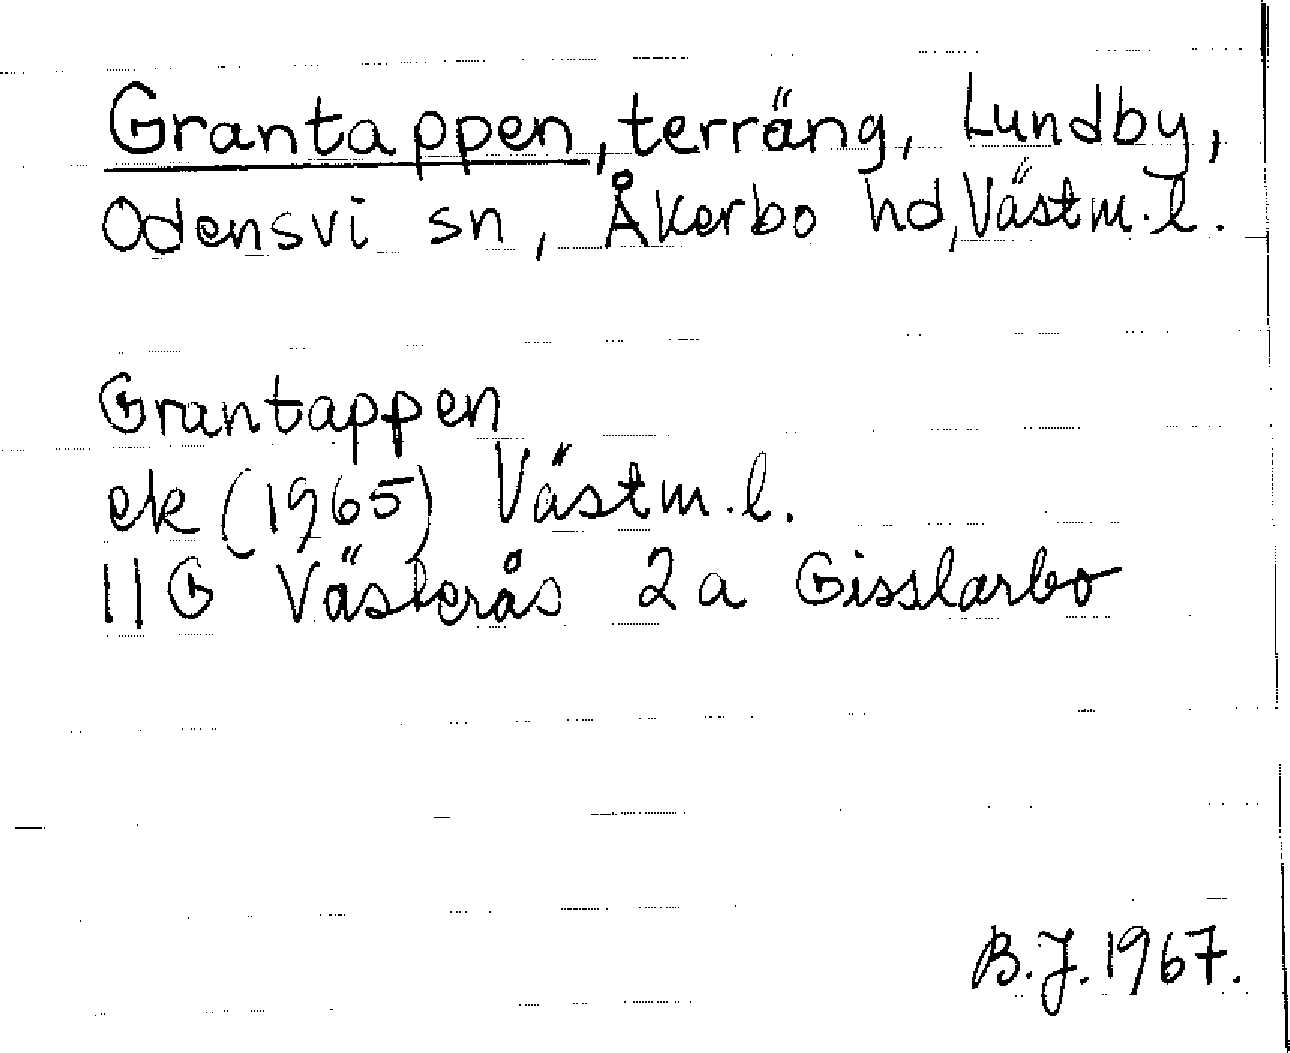 Grantappen, terräng, Lundby,
Odensvi sn, Åkerbo hd, Västm.l.
Grantappen
ek (1965) Västm.l.
11G Västerås 2a Gisslarbo
B.J. 1967.